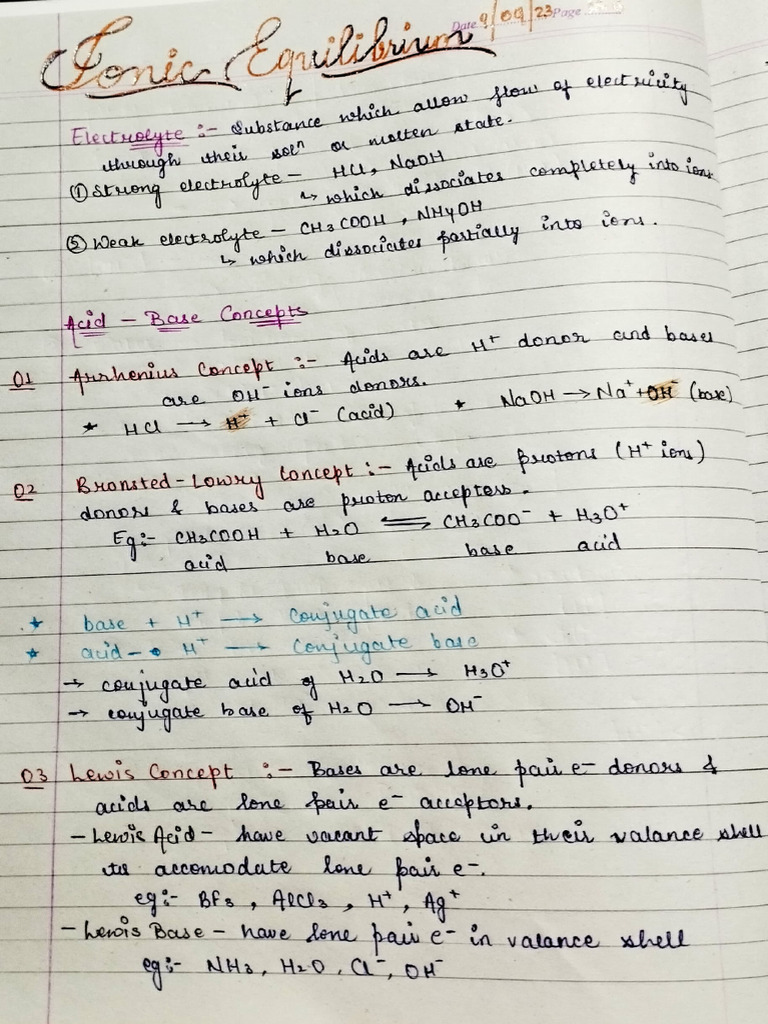 Date 9/09/23 Page
Ionic Equilibrium
Electrolyte :- Substance which allow flow of electricity
through their solⁿ or molten state.
① Strong electrolyte - HCl, NaOH
↳ which dissociates completely into ions
② Weak electrolyte - CH₃COOH, NH4OH
↳ which dissociates partially into ions.
Acid - Base Concepts
01 Arrhenius Concept :- Acids are H⁺ donor and bases
are OH⁻ ions donors.
* HCl → H⁺ + Cl⁻ (acid) * NaOH → Na⁺ + OH⁻ (base)
02 Bronsted-Lowry Concept :- Acids are protons (H⁺ ions)
donors & bases are proton acceptors.
Eg:- CH₃COOH + H₂O ⇌ CH₃COO⁻ + H₃O⁺
acid base base acid
* base + H⁺ → Conjugate acid
* acid - H⁺ → Conjugate base
→ conjugate acid of H₂O → H₃O⁺
→ conjugate base of H₂O → OH⁻
03 Lewis Concept :- Bases are lone pair e⁻ donors &
acids are lone pair e⁻ acceptors.
- Lewis Acid - have vacant space in their valance shell
to accomodate lone pair e⁻.
eg:- BF₃, AlCl₃, H⁺, Ag⁺
- Lewis Base - have lone pair e⁻ in valance shell
eg:- NH₃, H₂O, Cl⁻, OH⁻